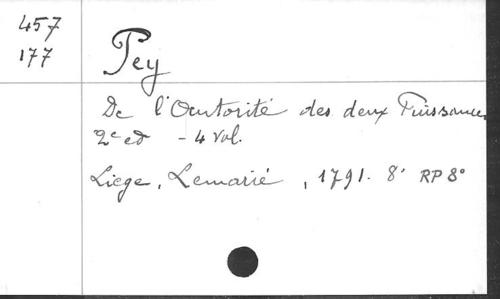 457
177
Pey
De l'Autorité des deux Puissances
2e ed - 4 vol.
Liege, Lemarié, 1791. 8° RP 8°